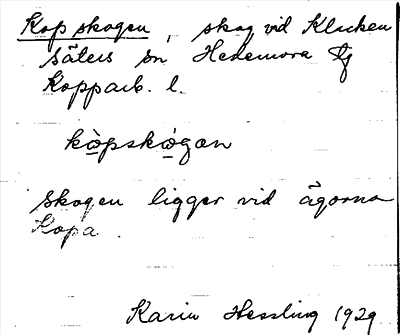 Kopskogen, skog vid Klacken
Säters sn Hedemora tg
Kopparb. l.
kòpskógan
skogen ligger vid ägorna
Kopa.
Karin Hessling 1929